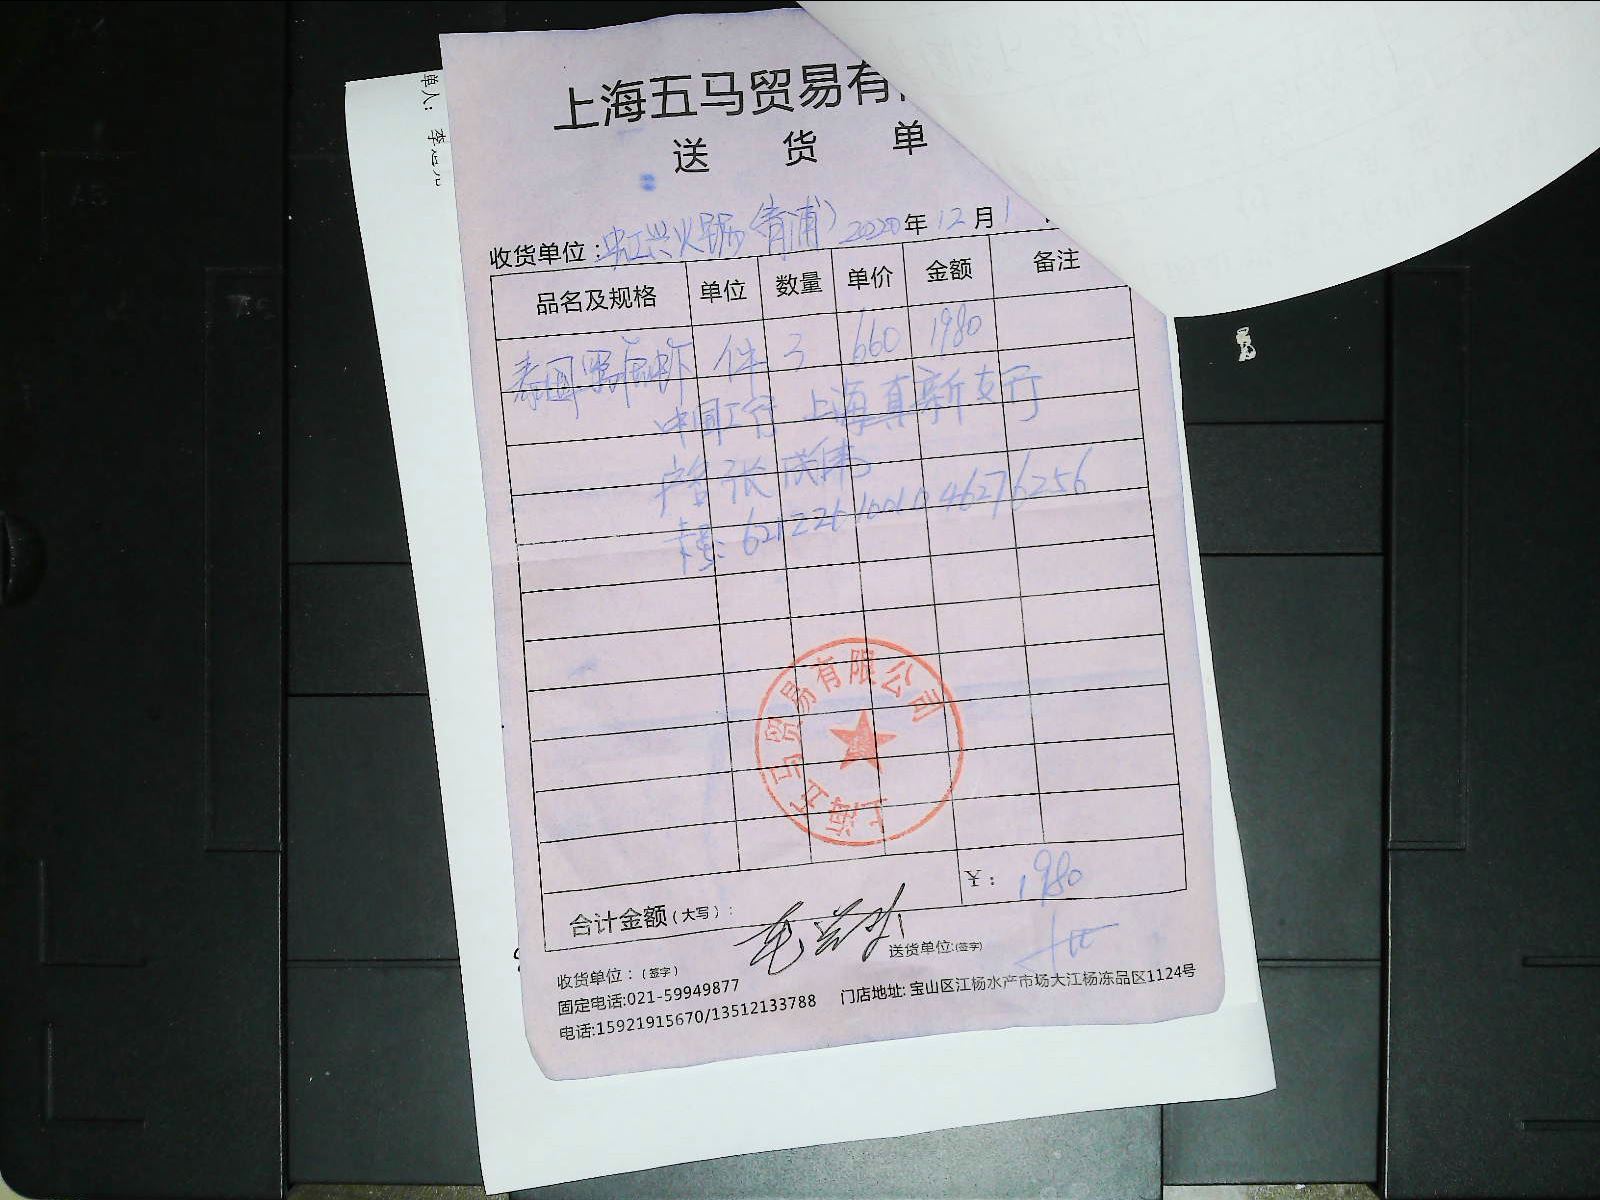 单人：
上海五马贸易有
送 货 单
收货单位： 兴火锅(青浦) 2020年12月1
品名及规格 单位 数量 单价 金额 备注
泰国罗氏虾 件 3 660 1980
中国工行 上海真新支行
户名 张
卡号: 6212261001046276256
上海五马贸易有限公司
¥： 1980
合计金额(大写)：
收货单位：(签字)
送货单位:(签字)
固定电话:021-59949877
电话:15921915670/13512133788 门店地址: 宝山区江杨水产市场大江杨冻品区1124号